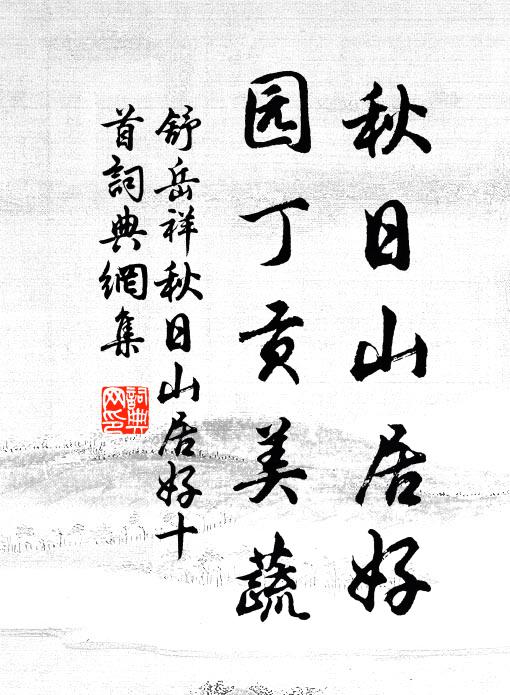 秋日山居好
园丁贡美蔬
舒岳祥秋日山居好十
首詞典網集
詞典
网印